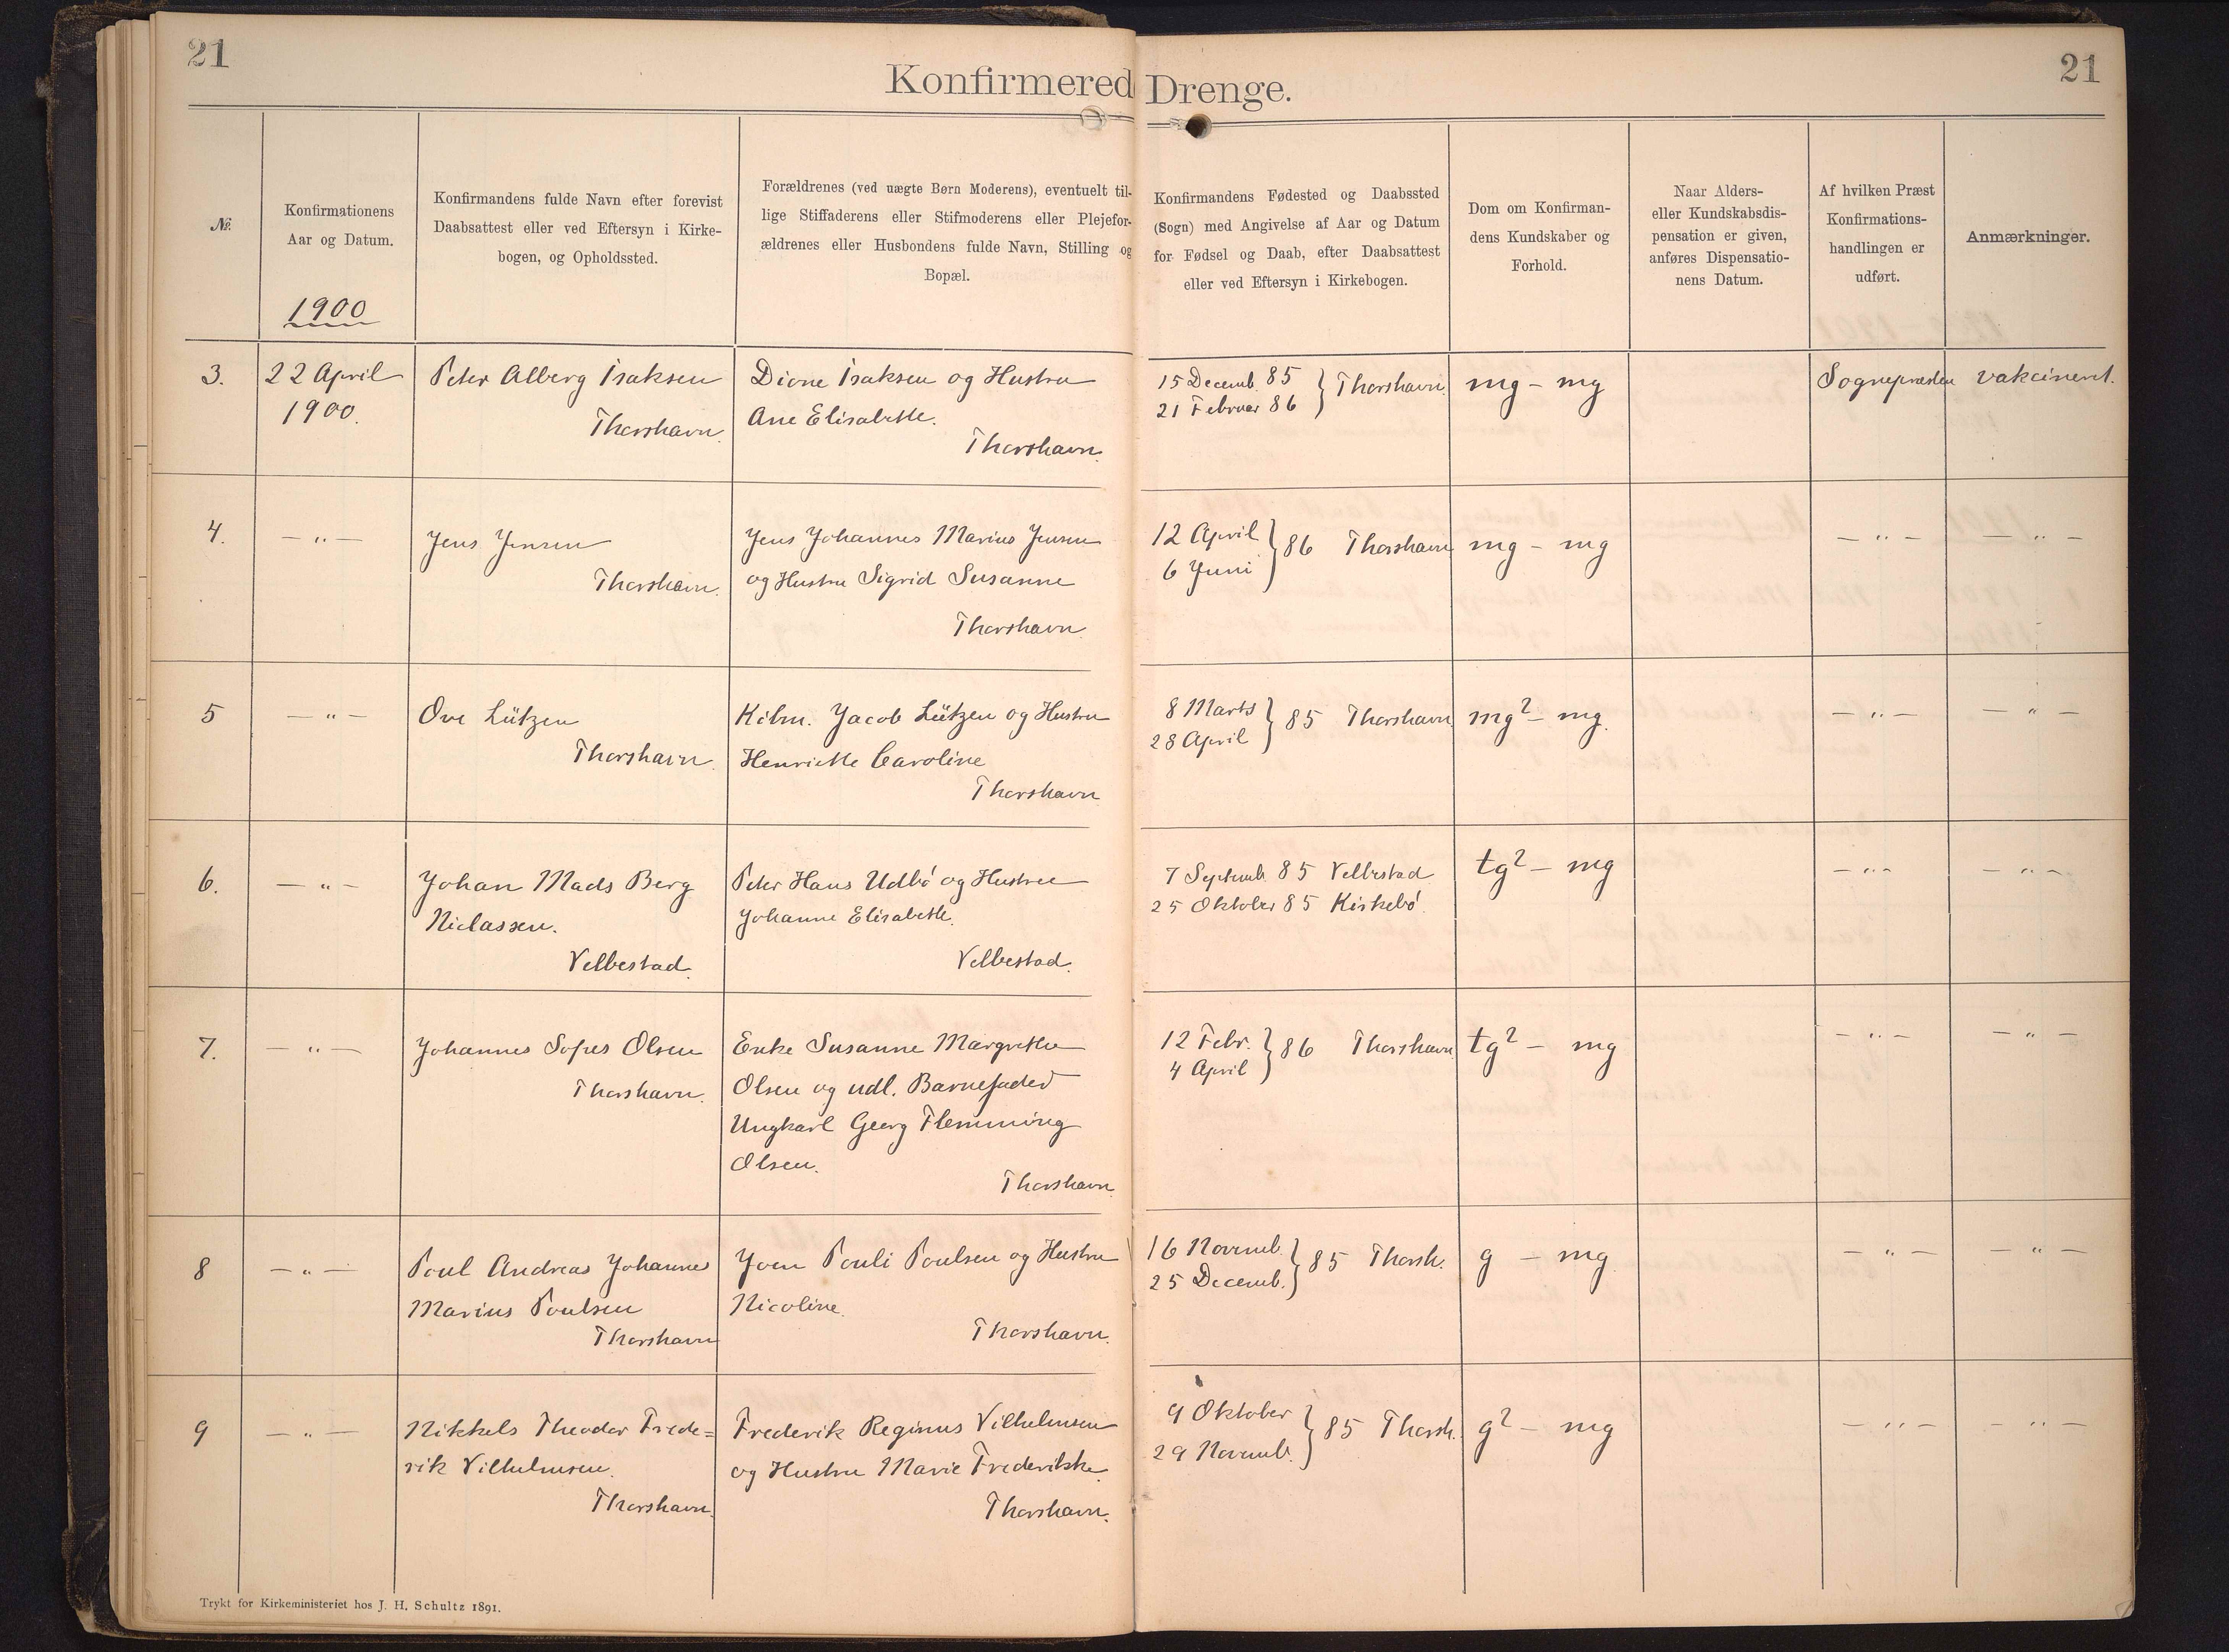 21
21
Konfirmered Drenge.
№.
Konfirmationens
Aar og Datum.
1900
Konfirmandens fulde Navn efter forevist
Daabsattest eller ved Eftersyn i Kirke-
bogen, og Opholdssted.
Forældrenes (ved uægte Børn Moderens), eventuelt til-
lige Stiffaderens eller Stifmoderens eller Plejefor-
ældrenes eller Husbondens fulde Navn, Stilling og
Bopæl.
Konfirmandens Fødested og Daabssted
(Sogn) med Angivelse af Aar og Datum
for Fødsel og Daab, efter Daabsattest
eller ved Eftersyn i Kirkebogen.
Dom om Konfirman-
dens Kundskaber og
Forhold.
Naar Alders-
eller Kundskabsdis-
pensation er given,
anføres Dispensatio-
nens Datum.
Af hvilken Præst
Konfirmations-
handlingen er
udført.
Anmærkninger.
3.
22 April
1900.
Peter Alberg Isaksen
Thorshavn.
Dione Isaksen og Hustru
Ane Elisabeth.
Thorshavn.
15 Decemb. 85
21 Februar 86 } Thorshavn.
mg - mg
Sognepræsten
vakcineret.
4.
— " —
Jens Jensen
Thorshavn.
Jens Johannes Marius Jensen
og Hustru Sigrid Susanne
Thorshavn
12 April
6 Juni } 86 Thorshavn
mg - mg
— " —
— " —
5
— " —
Ove Lützen
Thorshavn.
Kjbm. Jacob Lützen og Hustru
Henriette Caroline
Thorshavn
8 Marts
28 April } 85 Thorshavn.
mg² - mg.
— " —
— " —
6.
— " —
Johan Mads Berg
Niclassen.
Velbestad.
Peter Hans Udbø og Hustru
Johanne Elisabeth.
Velbestad.
7 Septemb. 85 Velbestad
25 Oktober 85 Kirkebø
tg² - mg
— " —
— " —
7.
— " —
Johannes Sofus Olsen
Thorshavn.
Enke Susanne Margrethe
Olsen og udl. Barnefader
Ungkarl Georg Flemming
Olsen.
Thorshavn
12 Febr.
4 April } 86 Thorshavn
tg² - mg
— " —
— " —
8
— " —
Poul Andreas Johannes
Marius Poulsen
Thorshavn
Joen Pouli Poulsen og Hustru
Nicoline.
Thorshavn.
16 Novemb.
25 Decemb. } 85 Thorsh.
g - mg
— " —
— " —
9
— " —
Nikkels Theodor Frede=
rik Vilhelmsen.
Thorshavn.
Frederik Reginus Vilhelmsen
og Hustru Marie Frederikke.
Thorshavn.
9 Oktober
29 Novemb. } 85 Thorsh.
g² - mg
— " —
— " —
Trykt for Kirkeministeriet hos J. H. Schultz 1891.